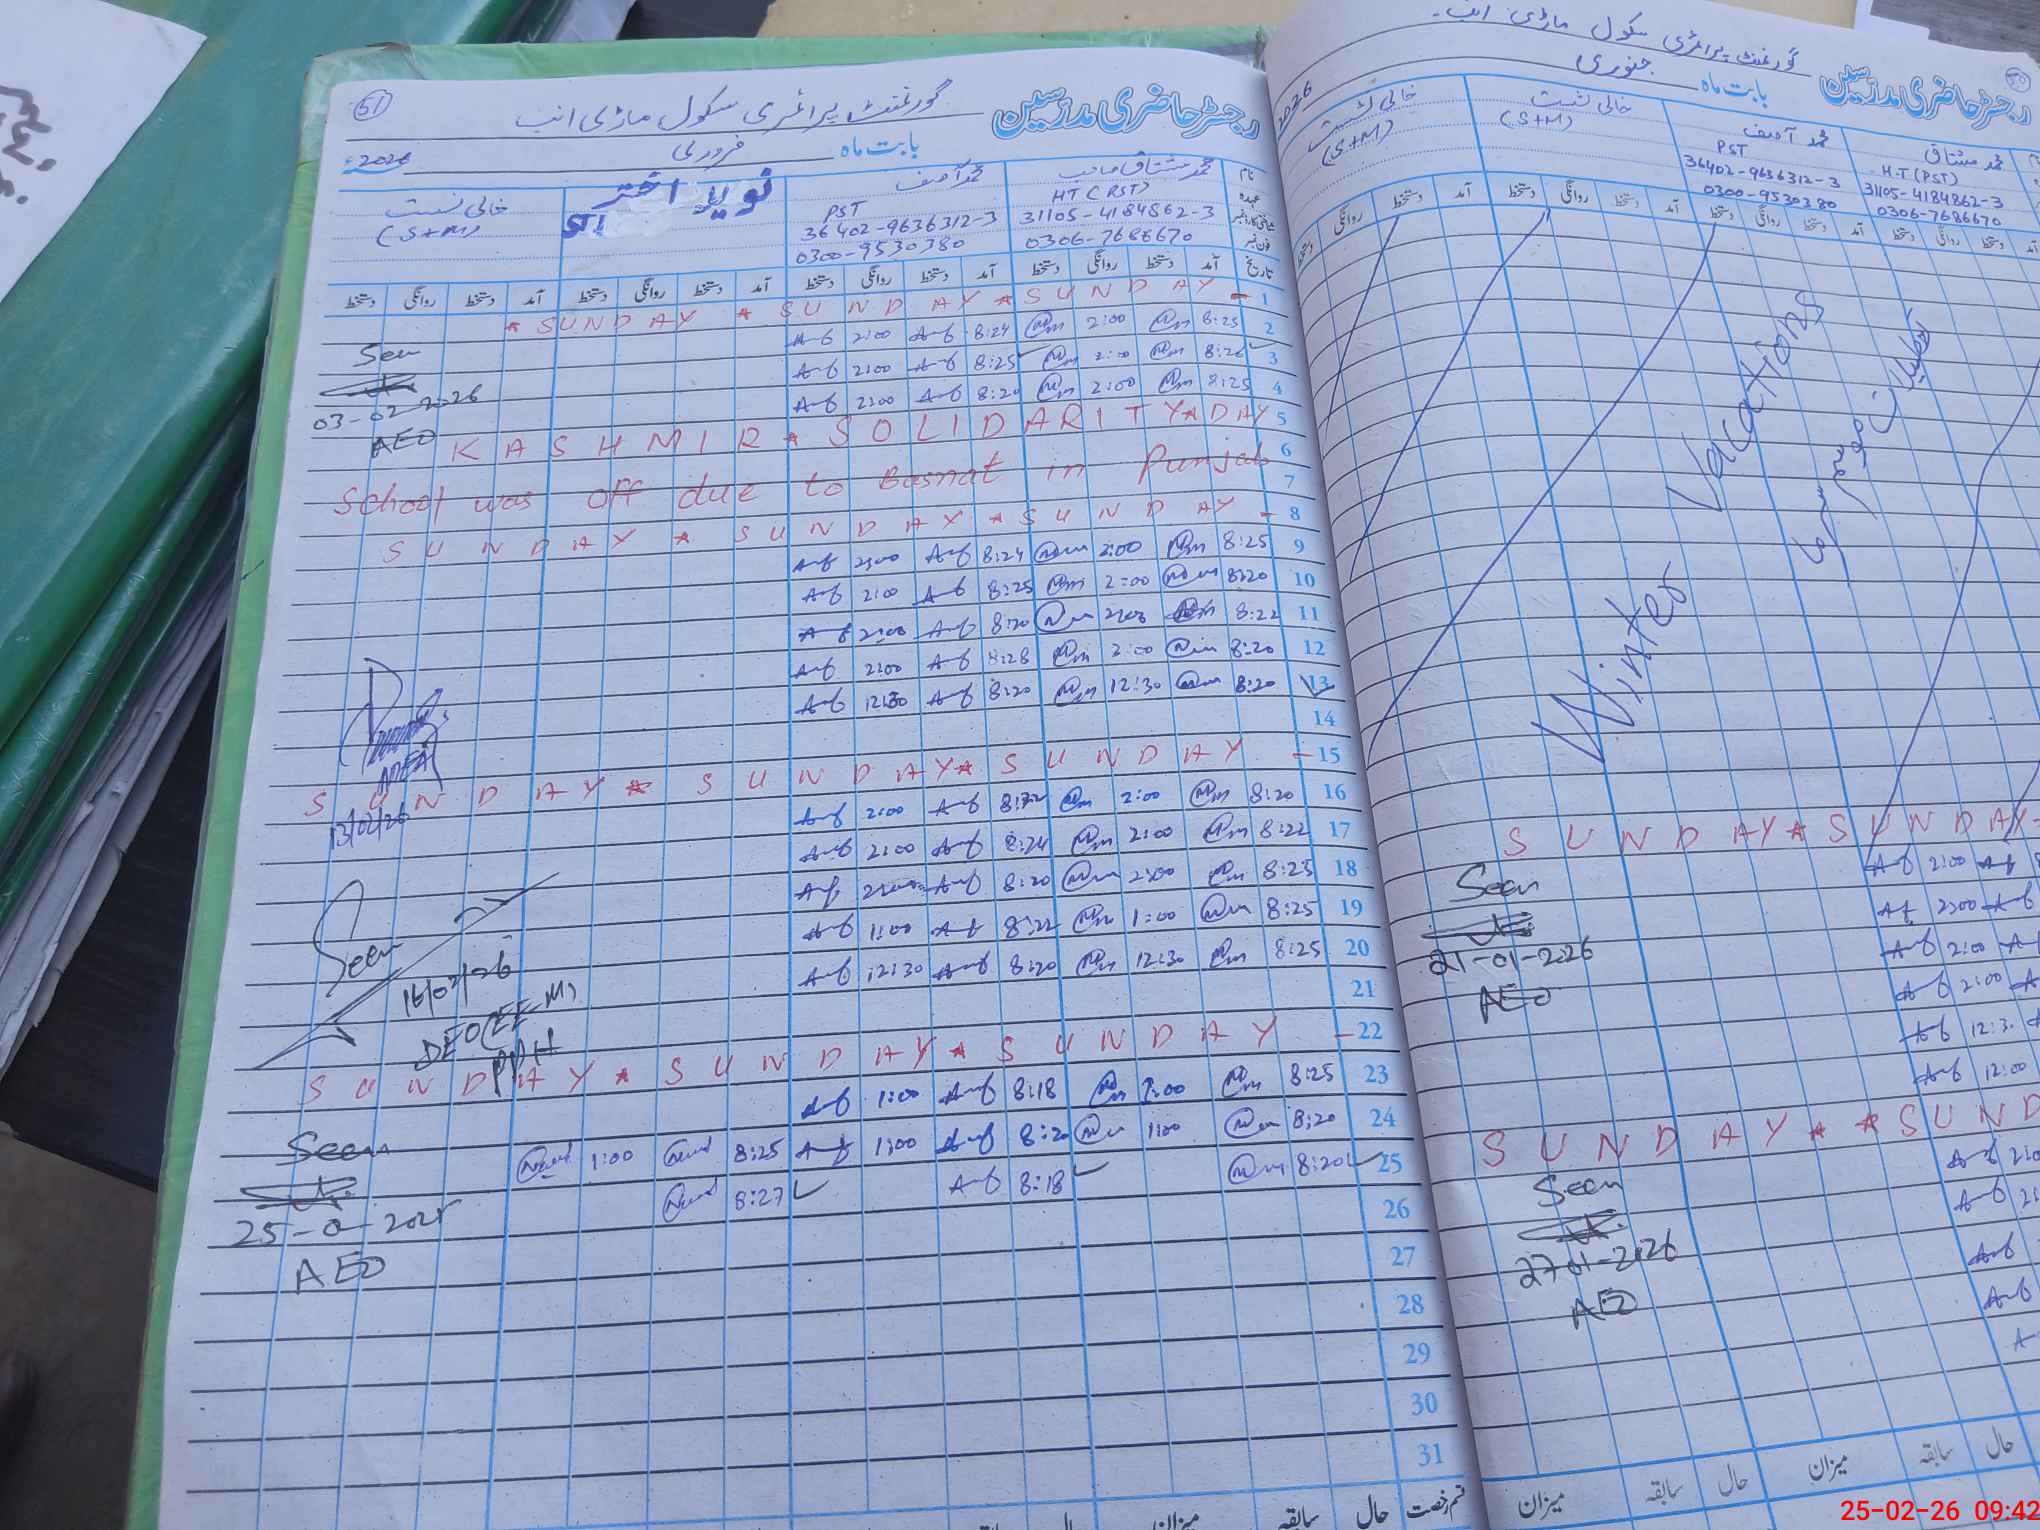 51
گورنمنٹ پرائمری سکول ماڑی انب
رجسٹر حاضری مدرسین
بابت ماہ فروری 2026ء
نام محمد مشتاق صاحب محمد آصف نوید اختر خالی نسٹ
عہدہ HT (PST) PST STI (S+M)
31105-4184862-3 36402-9636312-3
فون نمبر 0306-7686670 0300-9530380
تاریخ آمد دستخط روانگی دستخط آمد دستخط روانگی دستخط آمد دستخط روانگی دستخط آمد دستخط روانگی دستخط
★ SUNDAY ★ SUNDAY ★ SUNDAY - 1
2:00 8:24 2:00 8:25 2
Seen
2:00 8:25 2:00 8:26 3
03-02-2026
2:00 8:20 2:00 8:25 4
AEO
KASHMIR ★ SOLIDARITY ★ DAY 5
6
School was off due to Basnat in Punjab 7
SUNDAY ★ SUNDAY ★ SUNDAY - 8
2:00 8:24 2:00 8:25 9
2:00 8:25 2:00 8:20 10
2:00 8:20 2:00 8:22 11
2:00 8:28 2:00 8:20 12
12:30 8:20 12:30 8:20 13
14
SUNDAY ★ SUNDAY ★ SUNDAY - 15
13/02/26
2:00 8:22 2:00 8:20 16
2:00 8:24 2:00 8:22 17
2:00 8:20 2:00 8:25 18
Seen
1:00 8:22 1:00 8:25 19
16/02/26
12:30 8:20 12:30 8:25 20
DEO (EE-M)
PPH
21
SUNDAY ★ SUNDAY ★ SUNDAY - 22
1:00 8:18 1:00 8:25 23
Seen
1:00 8:25 1:00 8:20 1:00 8:20 24
8:27 8:18 8:20 25
AEO
26
27
28
29
30
31
قسم رخصت حال سابقہ میزان
50
گورنمنٹ پرائمری سکول ماڑی انب
رجسٹر حاضری مدرسین
بابت ماہ جنوری 2026
محمد مشتاق محمد آصف خالی نسٹ خالی نسٹ
H.T (PST) PST (S+M) (S+M)
31105-4184862-3 36402-9636312-3
0306-7686670 0300-9530380
دستخط روانگی دستخط آمد دستخط روانگی دستخط آمد دستخط روانگی دستخط آمد دستخط روانگی دستخط
Winter Vacations
تعطیلات موسم سرما
SUNDAY ★ SUNDAY
2:00
Seen
2:00
21-01-2026
2:00
AEO
2:00
12:3
12:00
SUNDAY ★ ★ SUND
Seen
27-01-2026
AEO
حال سابقہ میزان حال سابقہ میزان
25-02-26 09:42